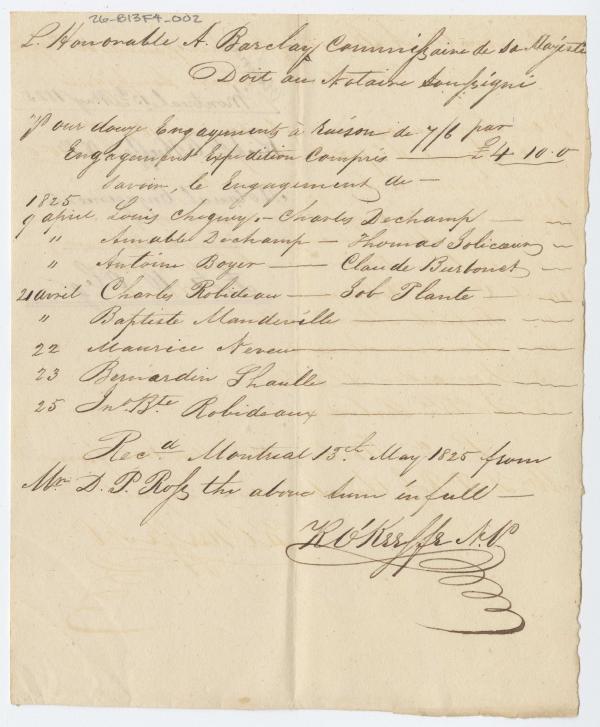 26-B13F4-002
L'Honorable A. Barclay Commissaire de Sa Majesté
Doit au Notaire Soussigné
Pour douze Engagements à raison de 7/6 par
Engagement Expedition Compris — £4 10.0
Savoir, le Engagement de —
1825
9 april Louis Choquey — Charles Dechamp —
" Amable Dechamp — Thomas Jolicaur —
" Antoine Boyer — Claude Burbonet —
21 avril Charles Robideau — Job Plante —
" Baptiste Mandeville —
22 Maurice Neveu —
23 Bernardin Shaulle —
25 Jno. Bte Robideaux —
Recd Montreal 13th May 1825 from
Mr D. P. Ross the above sum in full —
K O'Keeffe N.P